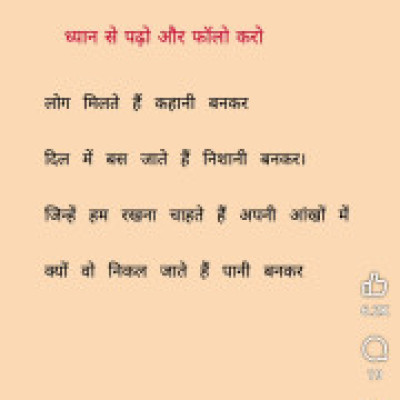 ध्यान से पढ़ो और फॉलो करो
लोग मिलते हैं कहानी बनकर
दिल में बस जाते हैं निशानी बनकर।
जिन्हें हम रखना चाहते हैं अपनी आंखों में
क्यों वो निकल जाते हैं पानी बनकर